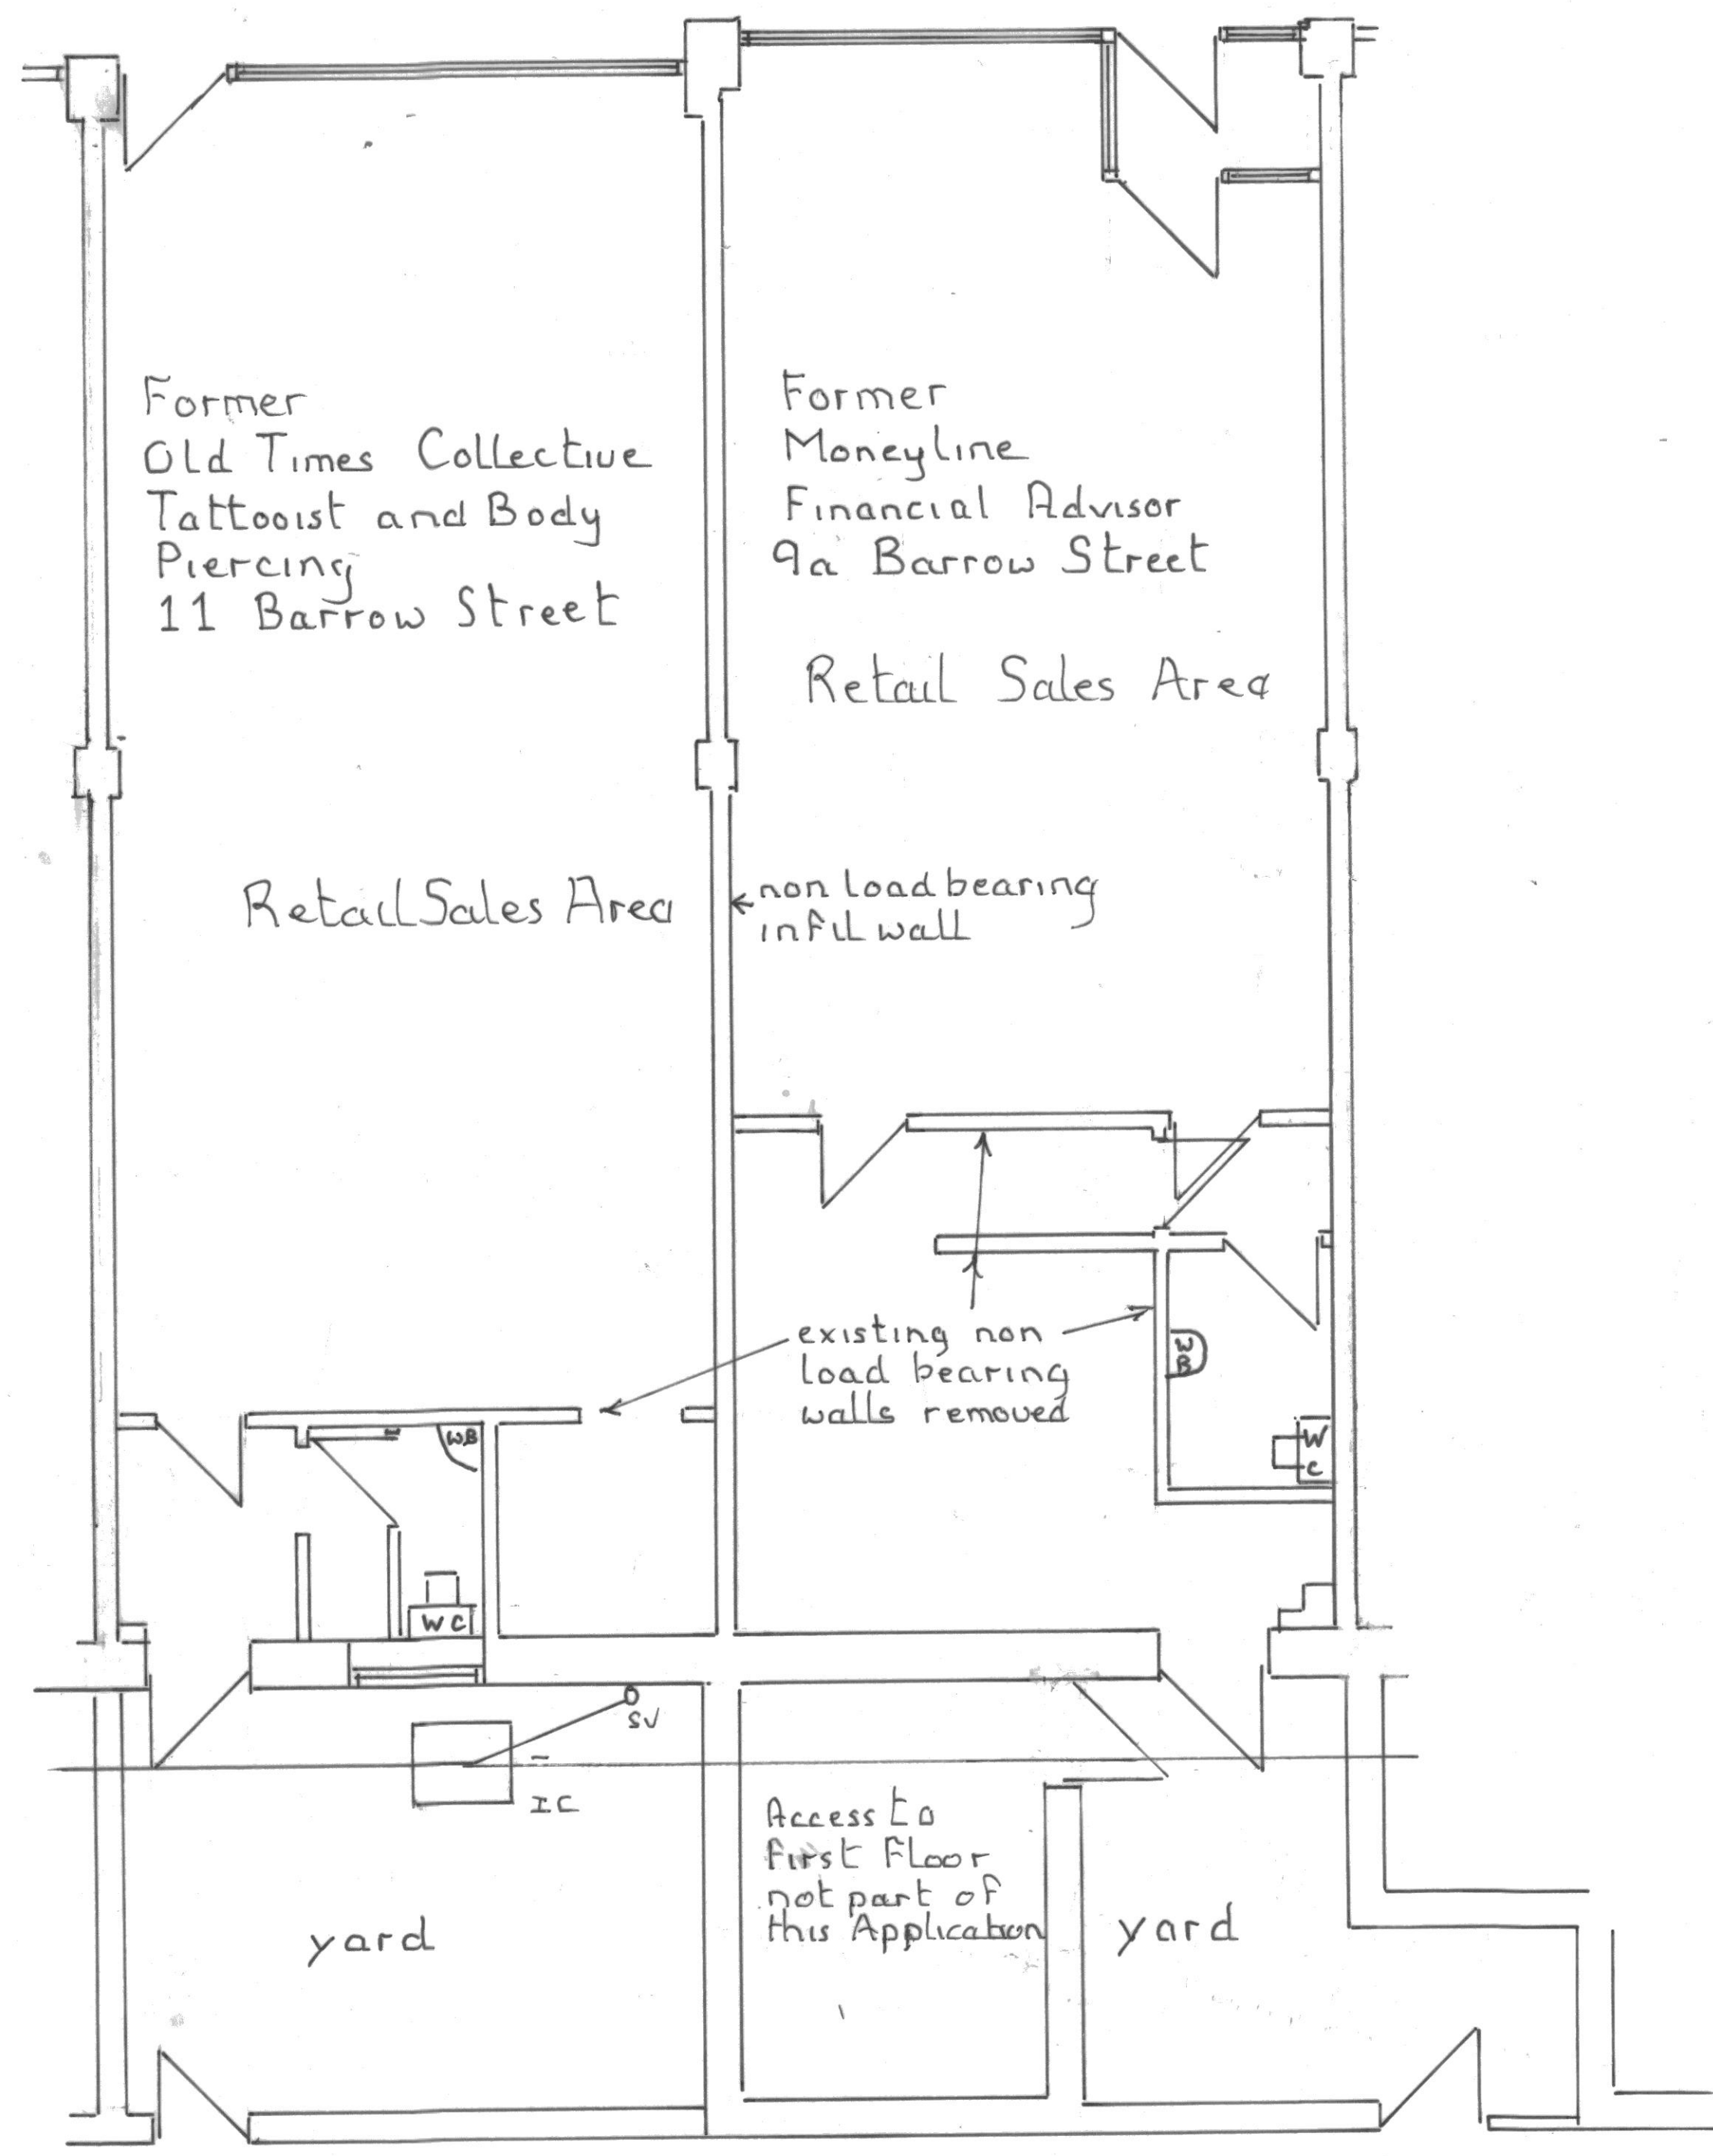 Former
Old Times Collective
Tattooist and Body
Piercing
11 Barrow Street
Former
Moneyline
Financial Advisor
9a Barrow Street
Retail Sales Area
Retail Sales Area
non load bearing
infil wall
existing non
load bearing
walls removed
WB
WC
W
B
W
C
SV
IC
Access to
first floor
not part of
this Application
yard
yard